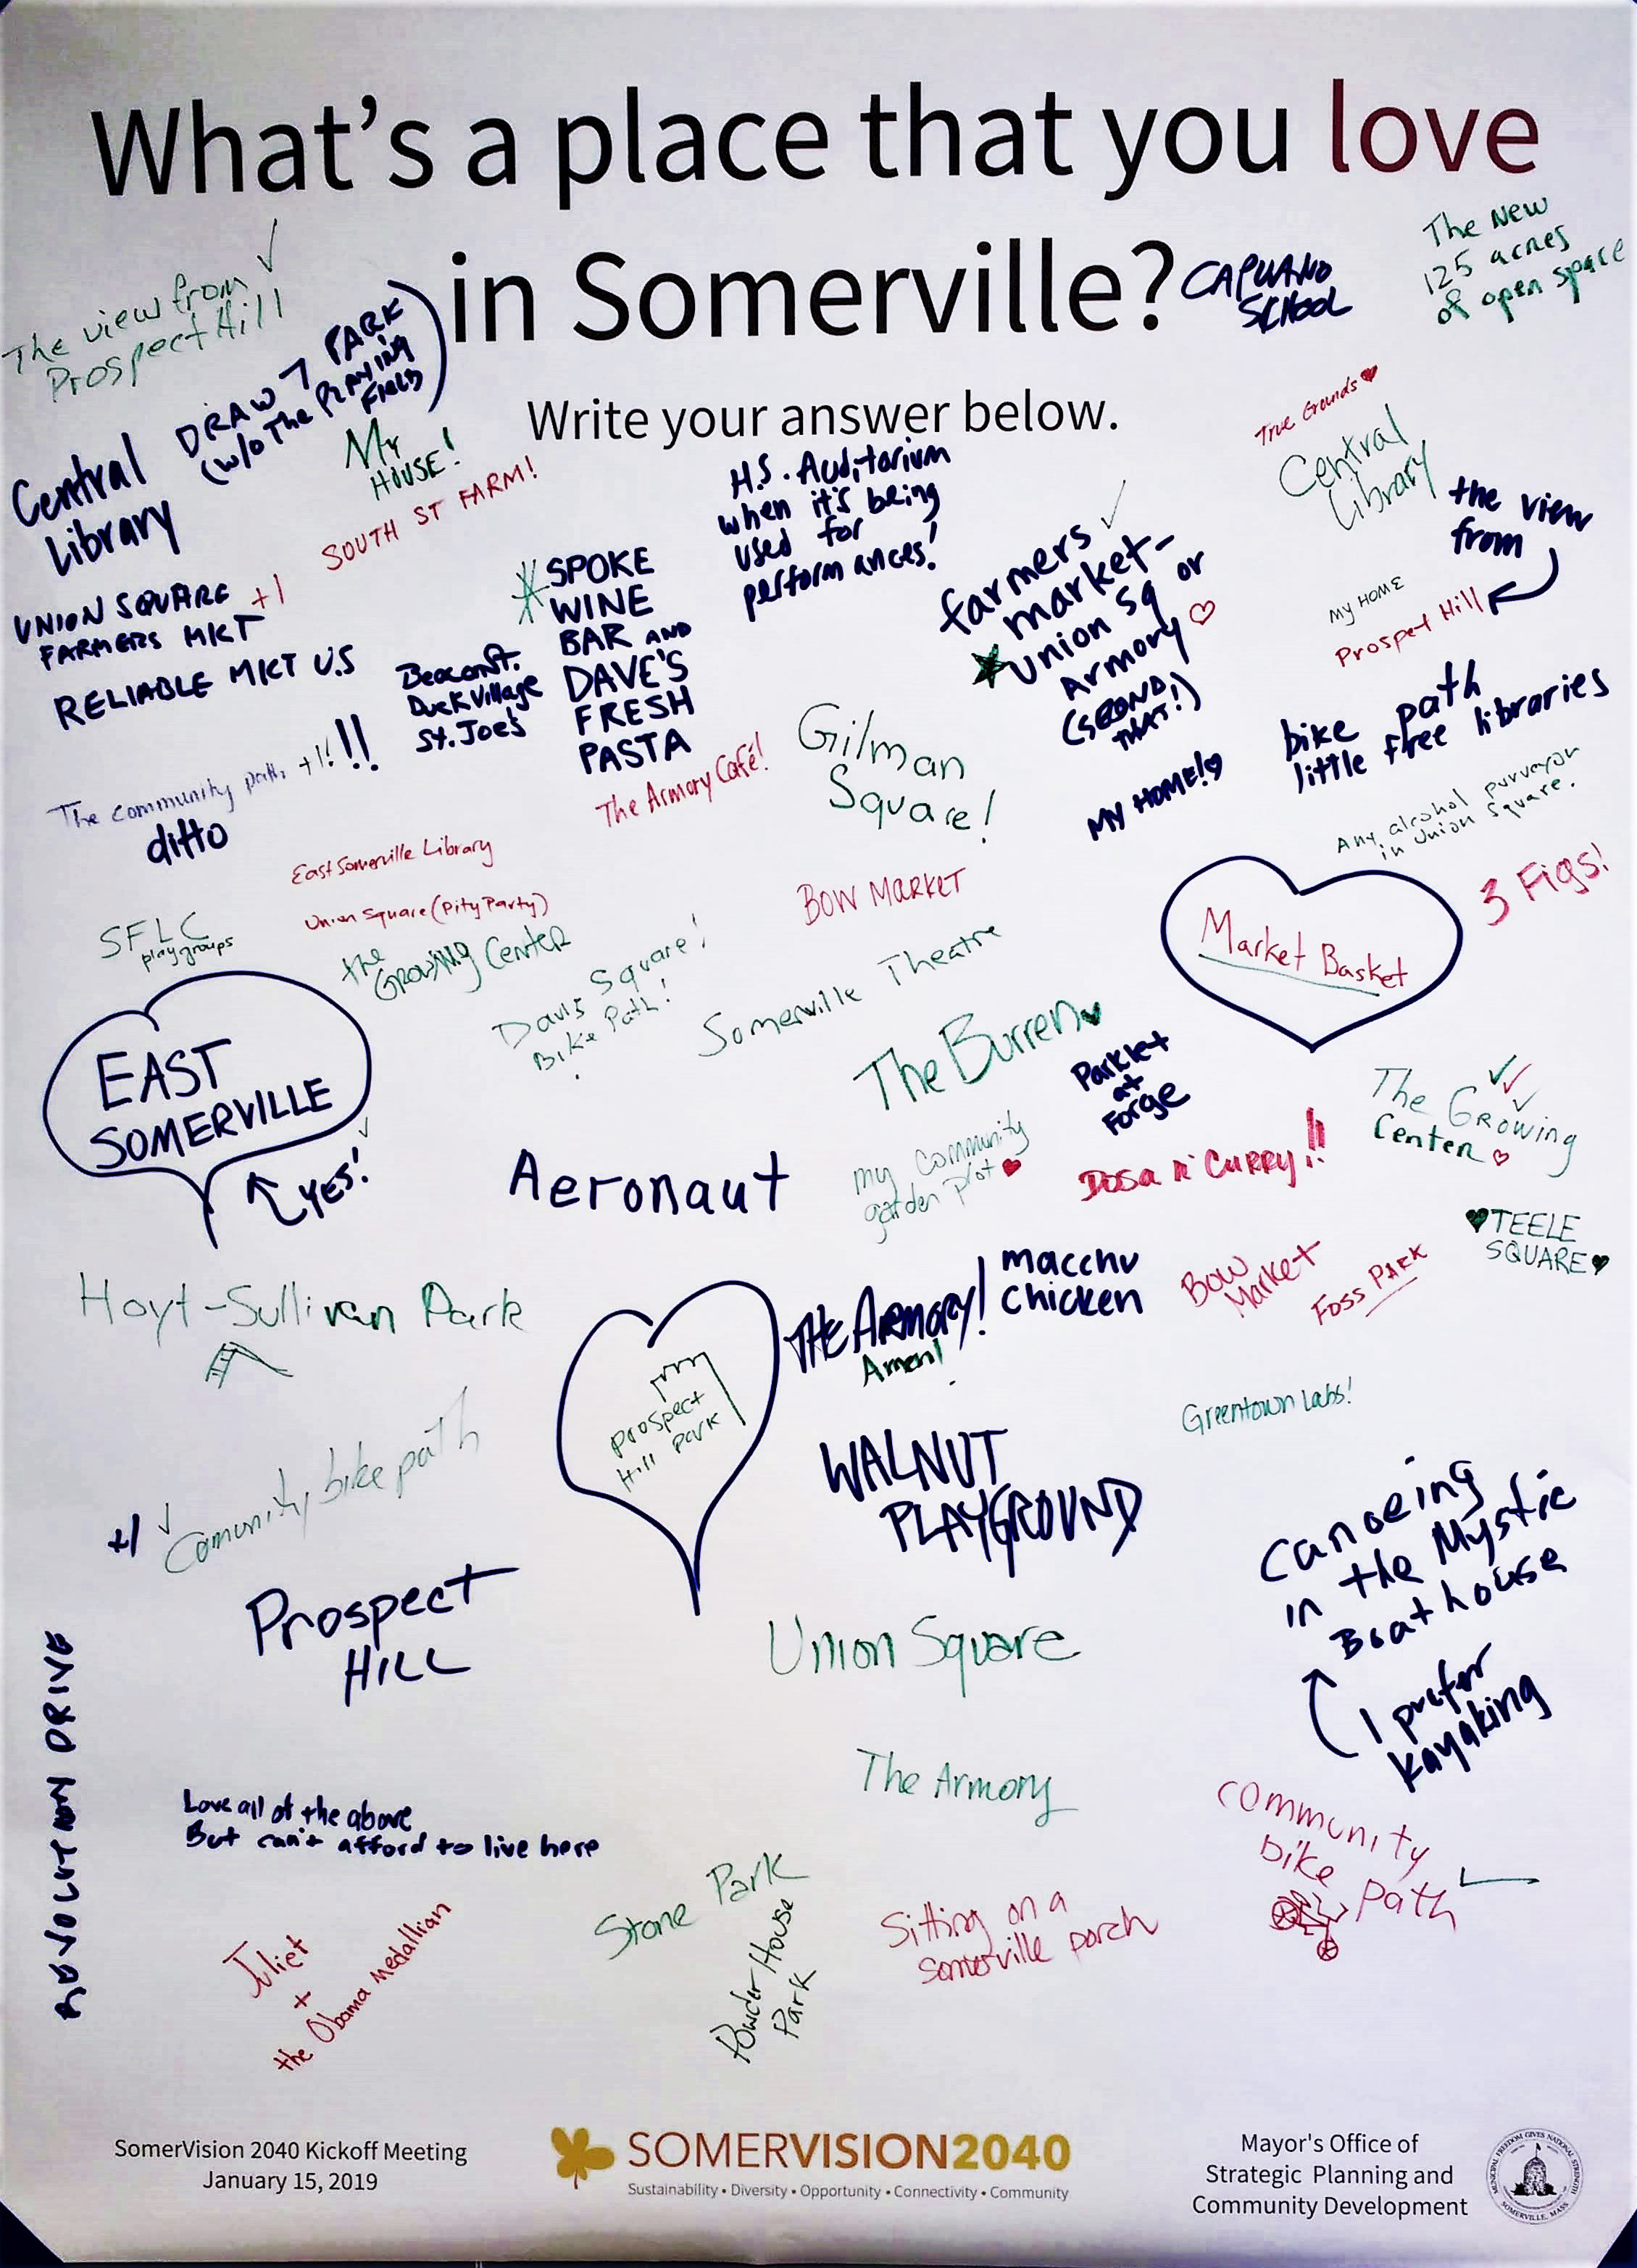 What's a place that you love
in Somerville?
Write your answer below.
The view from
Prospect Hill
DRAW 7 PARK
(w/o The PLAYING
FIELD)
CAPUANO
SCHOOL
The New
125 acres
of open space
Central
Library
My
HOUSE!
SOUTH ST FARM!
H.S. Auditorium
when it's being
used for
performances!
True Grounds
Central
Library
the view
from
MY HOME
Prospet Hill
UNION SQUARE +1
FARMERS MKT
RELIABLE MKT U.S
SPOKE
WINE
BAR AND
DAVE'S
FRESH
PASTA
Beacon St.
Duck Village
St. Joe's
farmers
market-
union sq or
Armory
(SECOND
THAT!)
bike path
little free libraries
The community path +1! !!
ditto
The Armory Café!
Gilman
Square!
MY HOME!
Any alcohol purveyor
in Union Square.
East Somerville Library
Union Square (Pity Party)
BOW MARKET
3 Figs!
Market Basket
SFLC
playgroups
the
GROWING Center
Davis Square!
Bike Path!
Somerville Theatre
The Burren
Parklet
at
Forge
EAST
SOMERVILLE
YES!
Aeronaut
my community
garden plot
Dosa n' Curry!!
The Growing
Center
TEELE
SQUARE
Hoyt-Sullivan Park
THE ARMORY!
Amen!
macchu
chicken
Bow
Market
Foss PARK
prospect
Hill park
Greentown Labs!
+1
Comunity bike path
WALNUT
PLAYGROUND
Canoeing
in the Mystic
Boathouse
I prefer
kayaking
Prospect
HILL
Union Square
The Armory
DRIVE
Love all of the above
But can't afford to live here
community
bike
path
Stone Park
Powder House
Park
Sitting on a
somerville porch
Juliet
+
the Obama medallian
SomerVision 2040 Kickoff Meeting
January 15, 2019
SOMERVISION2040
Sustainability • Diversity • Opportunity • Connectivity • Community
Mayor's Office of
Strategic Planning and
Community Development
MUNICIPAL FREEDOM GIVES NATIONAL STRENGTH
SOMERVILLE, MASS